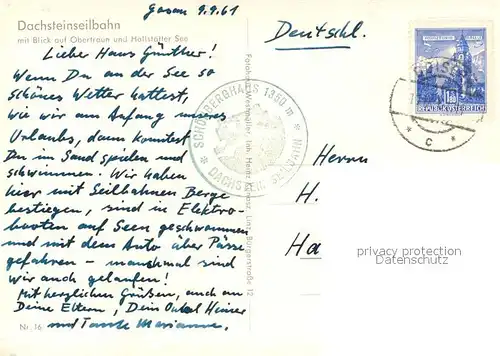 Dachsteinseilbahn
mit Blick auf Obertraun und Hallstätter See
Gosau 9.9.61
Lieber Hans Günther!
Wenn Du an der See so
schönes Wetter hattest,
wie wir am Anfang unseres
Urlaubs, dann konntest
Du im Sand spielen und
schwimmen. Wir haben
hier mit Seilbahnen Berge
bestiegen, sind in Elektro-
booten auf Seen geschwommen
und mit dem Auto über Pässe
gefahren – manchmal sind
wir auch gelaufen!
Mit herzlichen Grüßen, auch an
Deine Eltern, Dein Onkel Heiner
und Tante Marianne.
Nr. 16
SCHÖNBERGHAUS 1350 m
DACHSTEIN
Linz, Bürgerstraße 12
Deutschl.
Herrn
H.
Ha
REPUBLIK ÖSTERREICH
c
privacy protection
Datenschutz